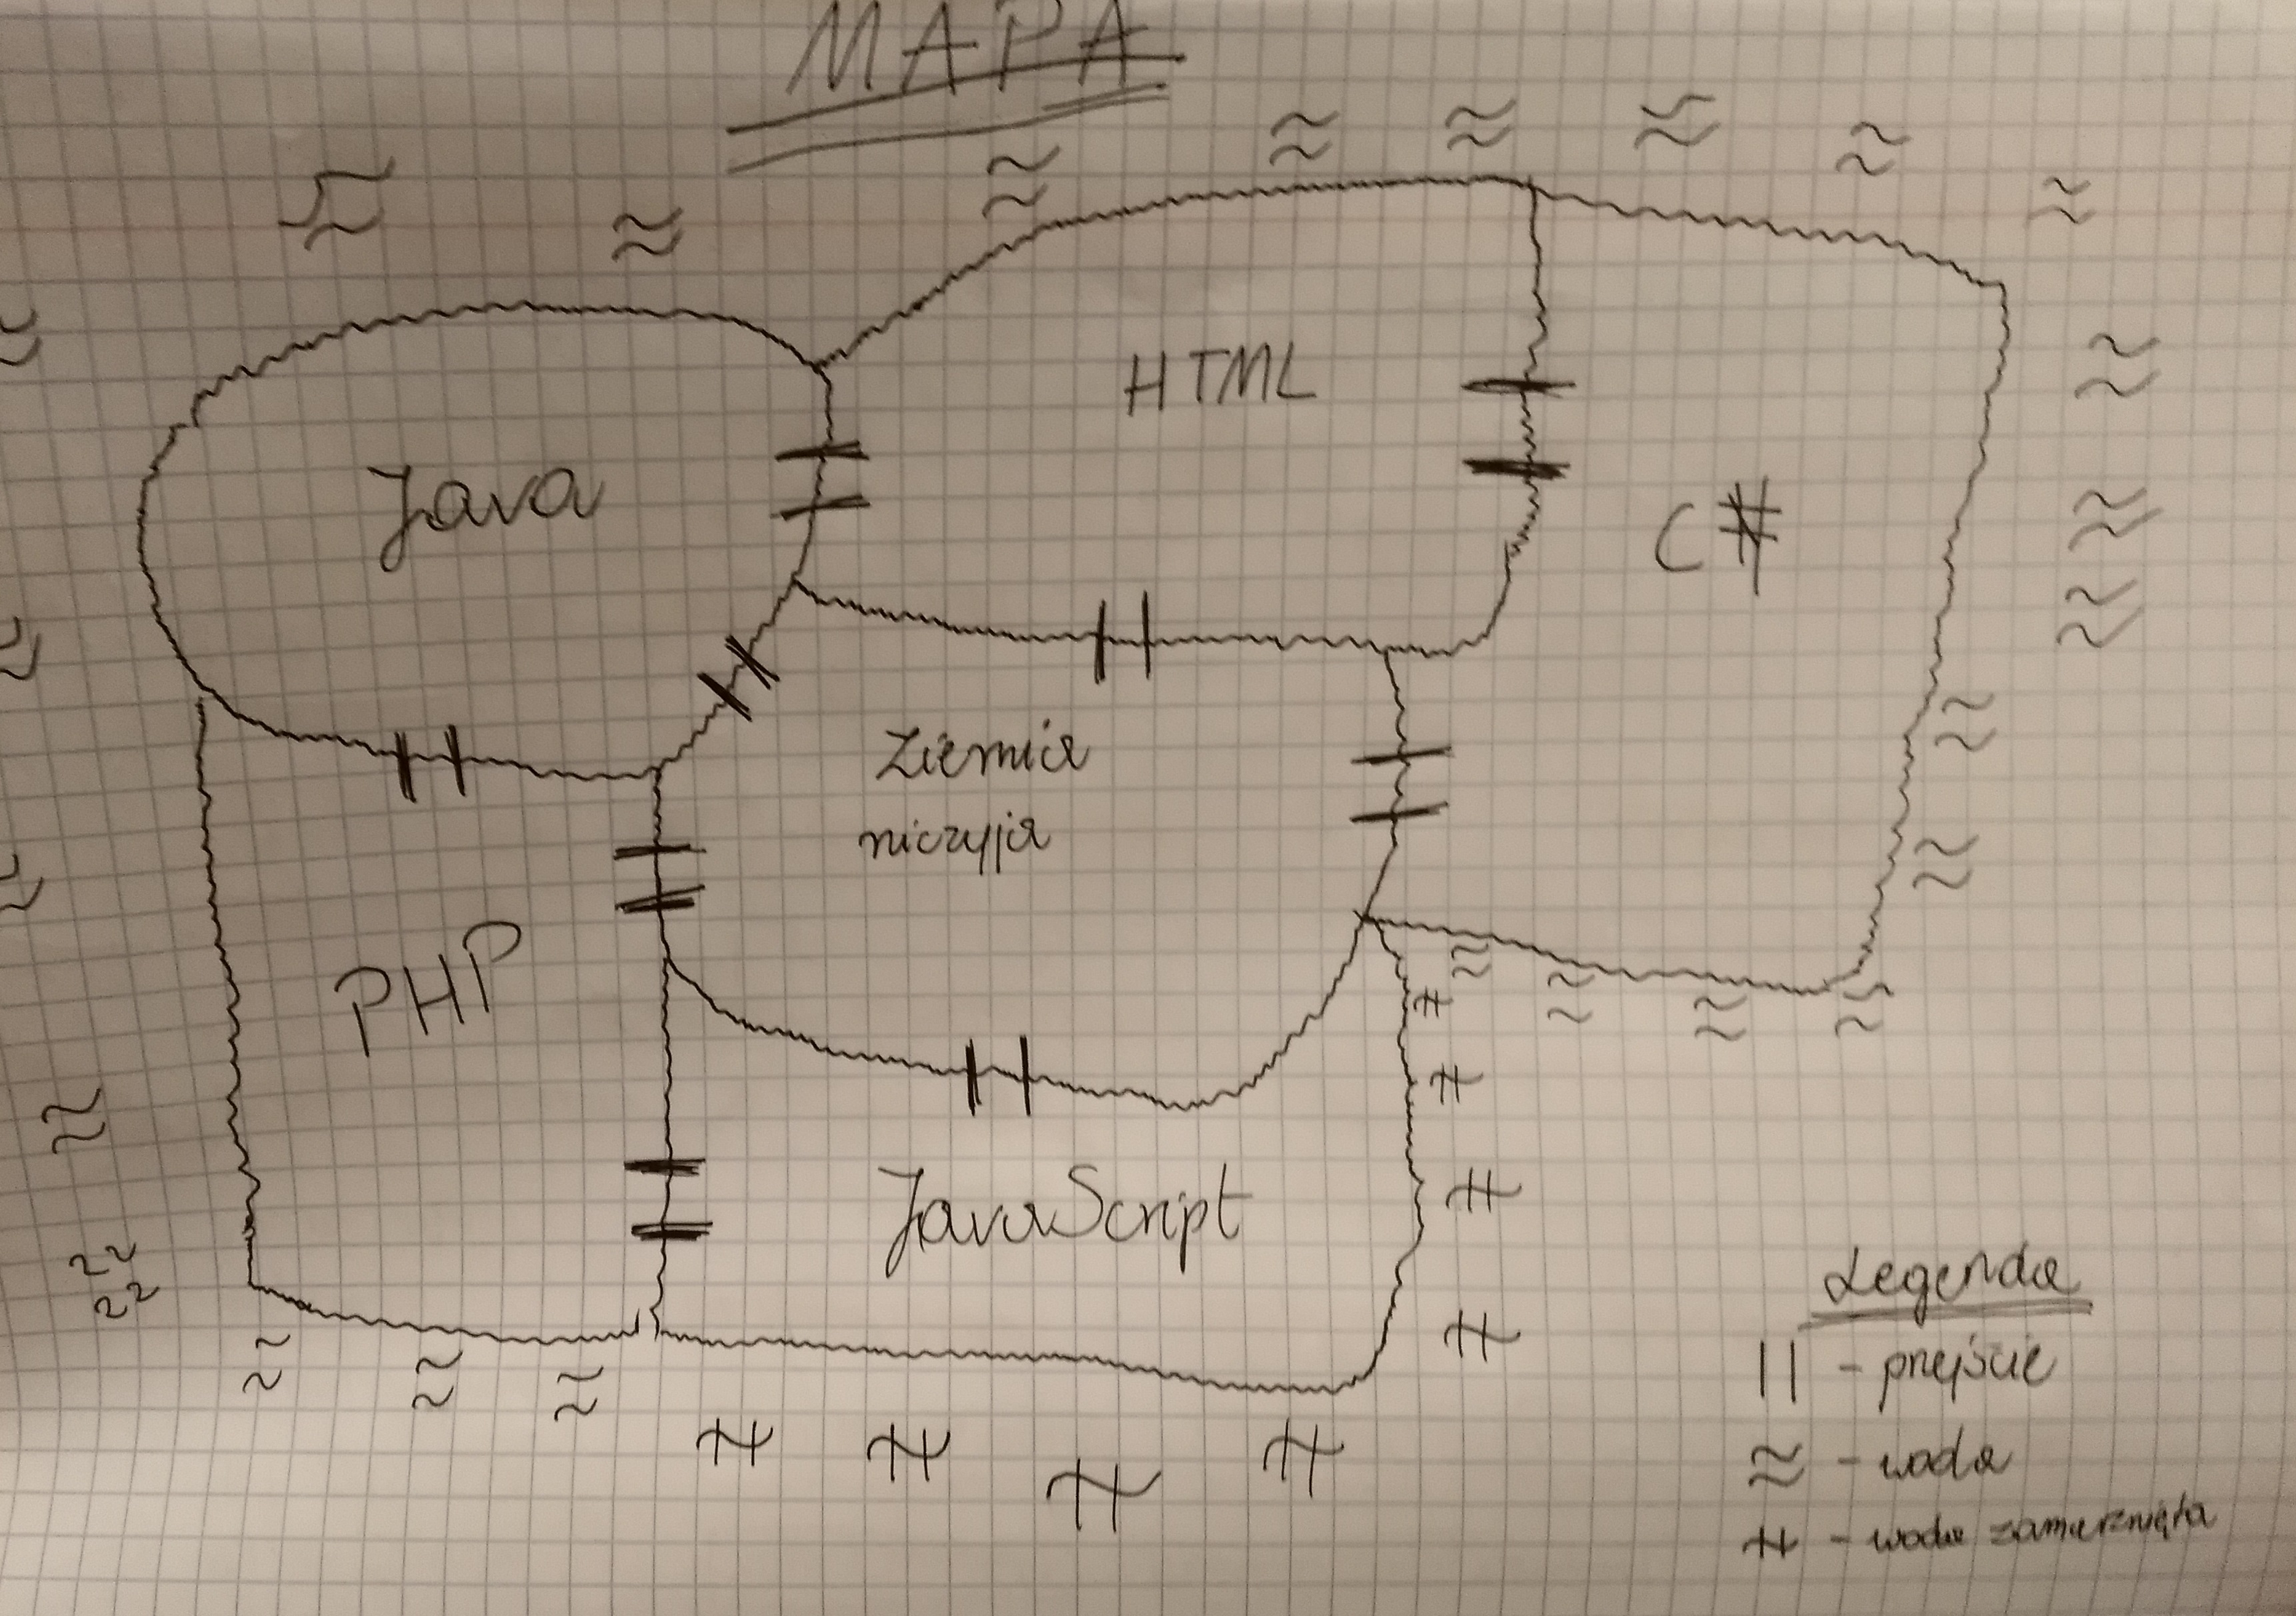 MAPA
HTML
Java
C#
Ziemia
niczyja
PHP
JavaScript
Legenda
|| - przejście
≈ - woda
- woda zamarznięta